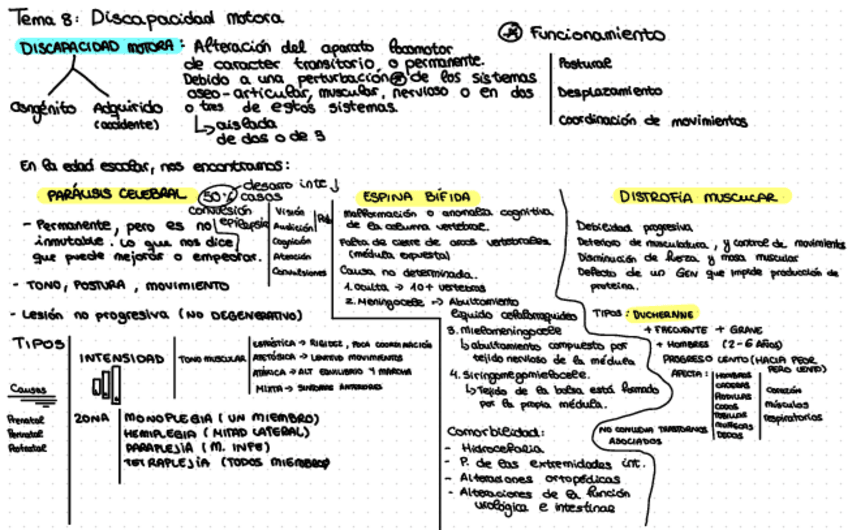 Tema 8: Discapacidad motora
DISCAPACIDAD MOTORA: Alteración del aparato locomotor
de caracter transitorio, o permanente.
Debido a una perturbación ⊛ de los sistemas
oseo-articular, muscular, nervioso o en dos
o tres de estos sistemas.
↳ aislada
de dos o de 3
Congénito
Adquirido
(accidente)
⊛ Funcionamiento
Postural
Desplazamiento
coordinación de movimientos
En la edad escolar, nos encontramos:
PARÁLISIS CELEBRAL
50% casos
desarro inte ↓
convulsión
epilepsia
- Permanente, pero es no
inmutable. Lo que nos dice
que puede mejorar o empeorar.
- TONO, POSTURA, MOVIMIENTO
- Lesión no progresiva (NO DEGENERATIVO)
Visión
Audición
Cognición
Atención
Convulsiones
TIPOS
Causas
Prenatal
Perinatal
Postnatal
INTENSIDAD
TONO MUSCULAR
ESPÁSTICA → RIGIDEZ, POCA COORDINACIÓN
ATETÓSICA → LENTIVO MOVIMIENTOS
ATÁXICA → ALT EQUILIBRIO Y MARCHA
MIXTA → SINTOMAS ANTERIORES
ZONA
MONOPLEGIA (UN MIEMBRO)
HEMIPLEGIA (MITAD LATERAL)
PARAPLEJÍA (M. INFE)
TETRAPLEJÍA (TODOS MIEMBROS)
ESPINA BÍFIDA
Malformación o anomalía cognitiva
de la columna vertebral.
Falta de cierre de arcos vertebrales
(médula expuesta)
Causa no determinada.
1. oculta → 10+ vertebras
2. Meningocele → Abultamiento
líquido cefalorraquídeo
3. mielomeningocele
↳ abultamiento compuesto por
tejido nervioso de la médula
4. Siringomegomielocele.
↳ Tejido de la bolsa está formado
por la propia médula.
Comorbilidad:
- Hidrocefalia
- P. de las extremidades int.
- Alteraciones ortopédicas
- Alteraciones de la función
urológica e intestinas
DISTROFÍA MUSCULAR
Debilidad progresiva
Deterioro de musculatura, y control de movimiento
Disminución de fuerza y masa muscular
Defecto de un GEN que impide producción de
proteína.
TIPOS: DUCHERNNE
+ FRECUENTE + GRAVE
+ HOMBRES (2-6 AÑOS)
PROGRESO LENTO (HACIA PEOR,
PERO LENTO)
AFECTA:
HOMBROS
CADERAS
RODILLAS
CODOS
TOBILLOS
MUÑECAS
DEDOS
Corazón
músculos
respiratorios
NO CONLLEVA TRASTORNOS
ASOCIADOS